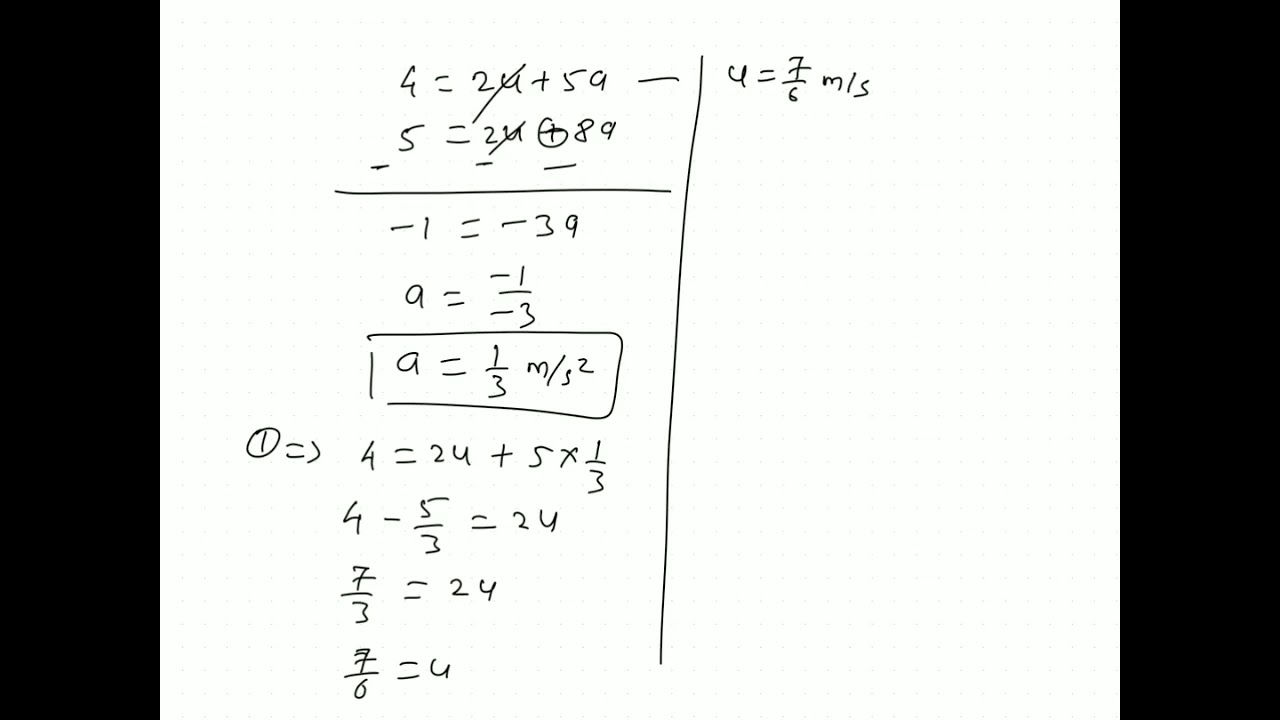 4 = 2u + 5a —
5 = 2u + 8a
- - —
-1 = -3a
a = -1/-3
a = 1/3 m/s²
① => 4 = 2u + 5 × 1/3
4 - 5/3 = 2u
7/3 = 2u
7/6 = u
u = 7/6 m/s